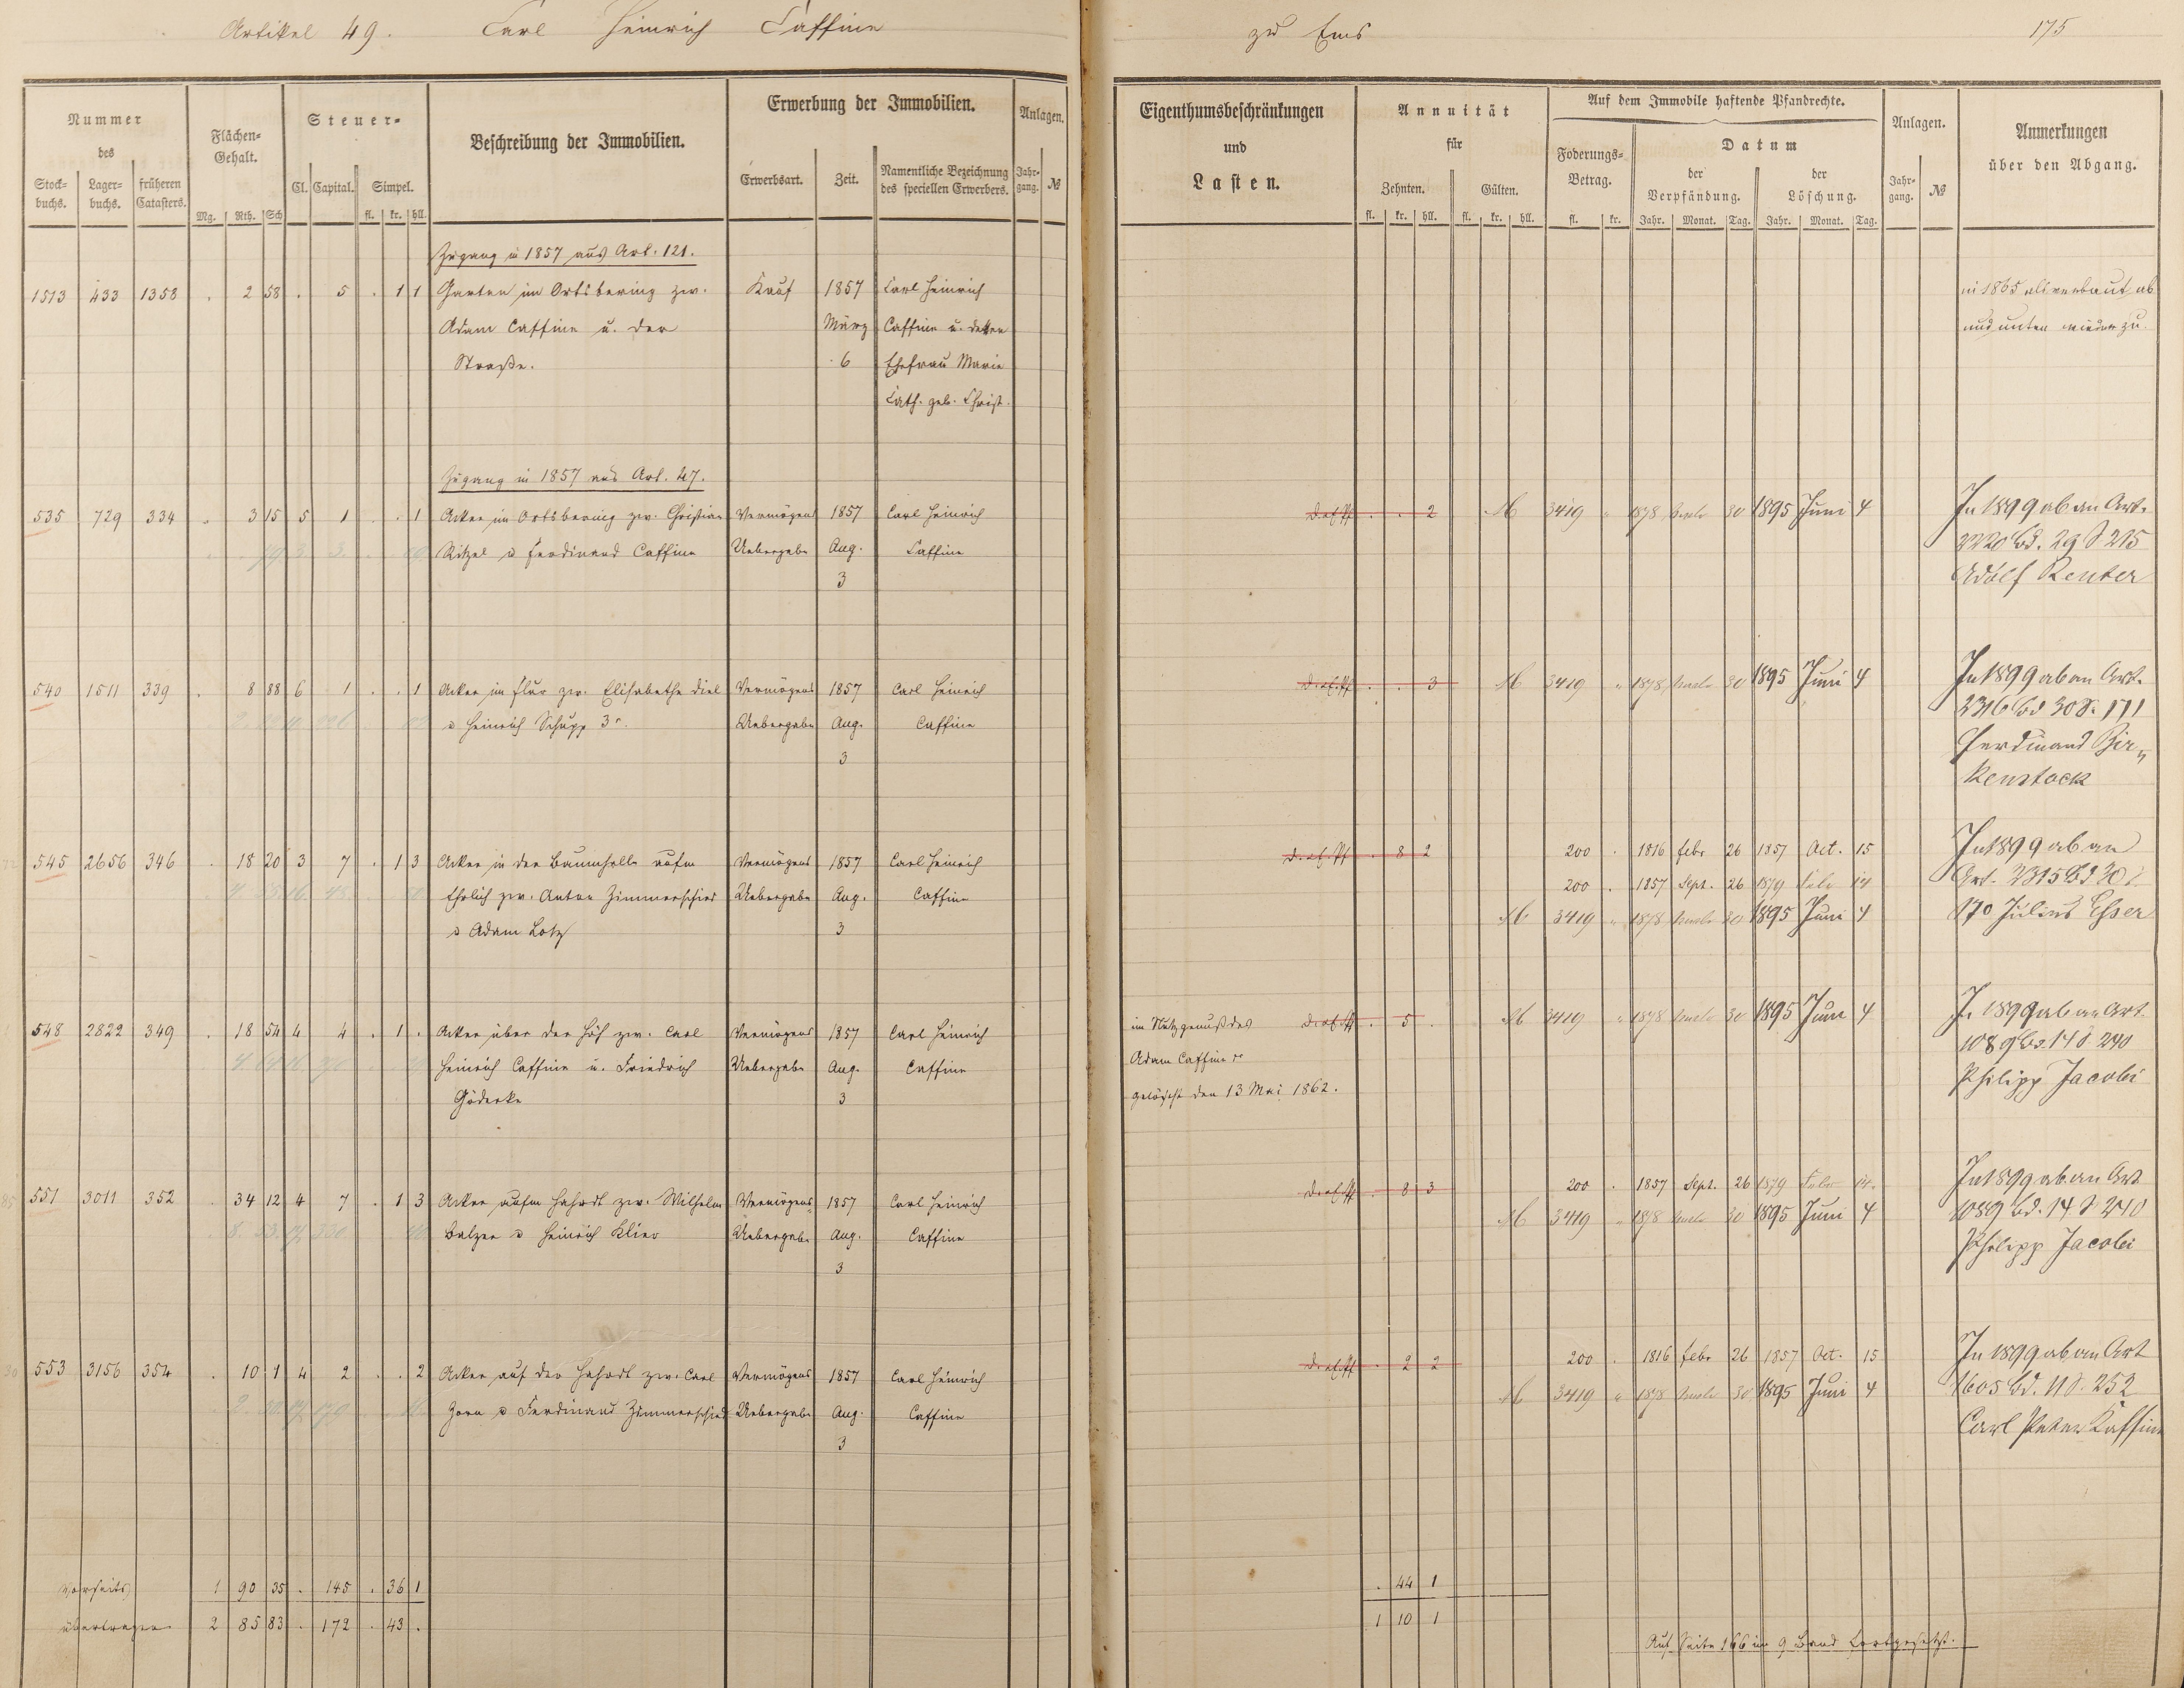 Artikel 49. Carl Heinrich Caffine zu Ems 175
Nummer des
Stock-buchs. Lager-buchs. früheren Catasters.
Flächen-Gehalt.
Mg. Rth. Sch
Steuer-
Cl. Capital. Simpel.
fl. kr. hll.
Beschreibung der Immobilien.
Erwerbung der Immobilien.
Erwerbsart. Zeit. Namentliche Bezeichnung des speciellen Erwerbers.
Anlagen.
Jahr-gang. №
Eigenthumsbeschränkungen
und
Lasten.
Annuität
für
Zehnten. Gülten.
fl. kr. hll. fl. kr. hll.
Auf dem Immobile haftende Pfandrechte.
Föderungs-Betrag.
fl. kr.
Datum
der Verpfändung. der Löschung.
Jahr. Monat. Tag. Jahr. Monat. Tag.
Anlagen.
Jahr-gang. №
Anmerkungen
über den Abgang.
Zugang in 1857 aus Art. 121.
1513 433 1358 . 2 58 . 5 . 1 1 Garten im Ortsbering zw. Kauf 1857 Carl Heinrich in 1865 als verbaut ab
Adam Caffine u. der März Caffine u. dessen und unten wieder zu.
Straße. 6 Ehefrau Marie
Cath. geb. Christ.
Zugang in 1857 aus Art. 47.
535 729 334 . 3 15 5 1 . . 1 Acker im Ortsbering zw. Christian Vermögens 1857 Carl Heinrich . . 2 M 3419 1878 30 1895 Juni 4 In 1899 ab an Art.
Ritzel u Ferdinand Caffine Uebergabe Aug. Caffine 2220 Bd. 29 S. 215
3 Adolf Reuter
540 1511 339 . 8 88 6 1 . . 1 Acker im Flur zw. Elisabethe Diel Vermögens 1857 Carl Heinrich . . 3 M 3419 1878 30 1895 Juni 4 In 1899 ab an Art.
u Heinrich Schupp 3r. Uebergabe Aug. Caffine 2316 Bd 30 S. 171
3 Ferdinand Bir-
kenstock
545 2656 346 . 18 20 3 7 . 1 3 Acker in der Baumhelle aufm Vermögens 1857 Carl Heinrich . 8 2 200 . 1816 Febr 26 1857 Oct. 15 In 1899 ab an
Ehrlich zw. Anton Zimmerschied Uebergabe Aug. Caffine 200 . 1857 Sept. 26 1879 Febr 14 Art. 2315 Bd 30 S.
u Adam Lotz 3 M 3419 1878 30 1895 Juni 4 170 Julius Esser
548 2822 349 . 18 54 4 4 . 1 . Acker über der Höh zw. Carl Vermögens 1857 Carl Heinrich im Nutzgenuß des . 5 . M 3419 1878 30 1895 Juni 4 In 1899 ab an Art.
Heinrich Caffine u. Friedrich Uebergabe Aug. Caffine Adam Caffine 1089 Bd. 14 S. 240
Göderke 3 gelöscht den 13 Mai 1862. Philipp Jacobi
551 3011 352 . 34 12 4 7 . 1 3 Acker aufm Hahrdt zw. Wilhelm Vermögens 1857 Carl Heinrich . 8 3 200 . 1857 Sept. 26 1879 Febr 14. In 1899 ab an Art
Balzer u Heinrich Klier Uebergabe Aug. Caffine M 3419 1878 30 1895 Juni 4 1089 Bd. 14 S 240
3 Philipp Jacobi
553 3156 354 . 10 1 4 2 . . 2 Acker auf der Hahrdt zw. Carl Vermögens 1857 Carl Heinrich . 2 2 200 . 1816 Febr 26 1857 Oct. 15 In 1899 ab an Art
Zorn u Ferdinand Zimmerschied Uebergabe Aug. Caffine M 3419 1878 30 1895 Juni 4 1605 Bd. 11 S. 252
3 Carl Peter Kaffine
Vorseits 1 90 35 . 145 . 36 1 . 44 1
übertragen 2 85 83 . 172 . 43 . 1 10 1
Auf Seite 166 im 9 Band fortgesetzt.